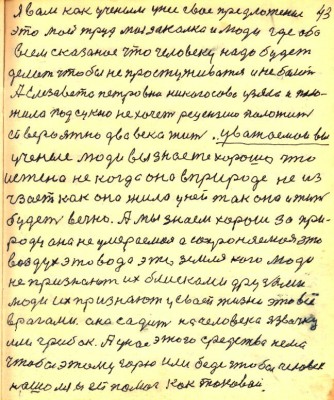 Я вам как ученым уже свое предложение 43
это мой труд мы закалка и люди где обо
всем сказано что человеку надо будет
делать чтобы не простуживатся и не болет
А Елизавета петровна никого сово узяла и поло-
жила под сукно не хочет решению положит
с вероятно два века жит. уважаемои вы
ученые люди вы знаете хорошо это
истена не когда она в природе не из
чзает как она жила у ней так она и жит
будет вечно. А мы знаем хорош за при-
роду она не умераемоя а сохроняемоя это
воздух это вода это земля кого люди
не признают их блисками друзями
люди их признают у своей жизни это все
врагами. она садит на человека язвочку
или грибок. А у нас этого средства нема
чтобы этому горю или беде чтобы человек
нашол и ей помог как таковой.